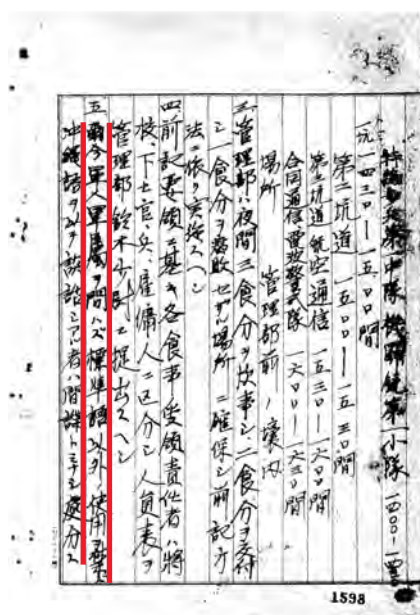 中隊機関銃第一小隊 一四〇〇―一四三〇
一四三〇―一五〇〇間
第二坑道 一五〇〇―一五三〇間
坑道航空通信 一五三〇― 間
合同通信電波警戒隊 一六〇〇―一六三〇間
場所 管理部前ノ壕内
三、管理部ハ夜間三食分ヲ炊事シ、二食分ヲ交付
シ一食分ヲ腐敗セザル場所ニ確保シ前記方
法ニ依リ実施スヘシ
四 前記要領ニ基キ各食事受領責任者ハ将
校、下士官、兵、雇傭人ニ区分シ人員表ヲ
管理部鈴木少尉ニ提出スヘシ
五 爾今軍人軍属ヲ問ハズ標準語以外ノ使用ヲ禁ズ
沖縄語ヲ以テ談話シアル者ハ間諜トミナシ処分ス
1598